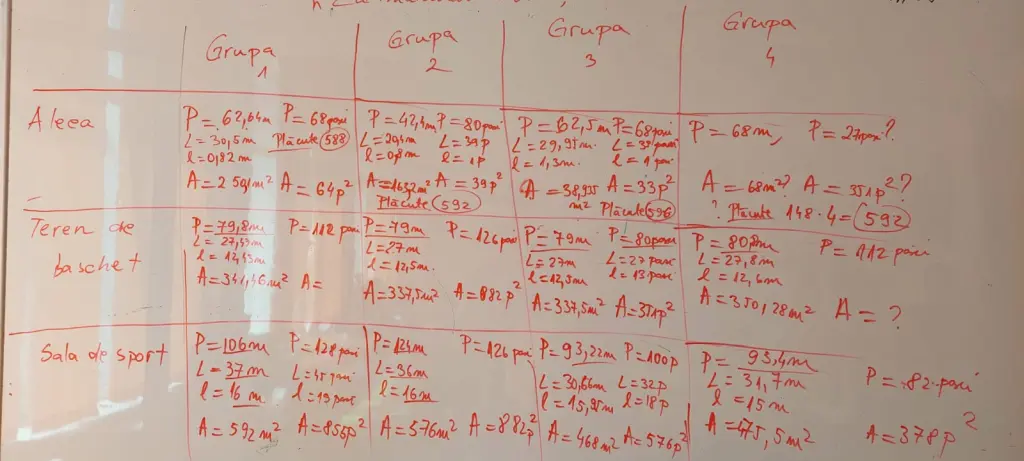 Grupa 1
Grupa 2
Grupa 3
Grupa 4
Aleea
P=62,64m P=68pași
L=30,5m Plăcute 588
l=0,82m
A=2591m² A=64p²
P=42,4m P=80pași
L=20,4m L=39p
l=0,8m l=1p
A=16,32m² A=39p²
Plăcute 592
P=62,5m P=68pași
L=29,95m. L=33pași
l=1,3m. l=1pas
A=38,935 m² A=33p²
Plăcute 596
P=68m, P=27pași?
A=68m²? A=351p²?
? Plăcute 148·4=592
Teren de baschet
P=79,8m P=112pași
L=27,43m
l=12,43m
A=341,46m² A=
P=79m P=126pași
L=27m
l=12,5m.
A=337,5m² A=882p²
P=79m P=80pași
L=27m L=27pași
l=12,5m l=13pași
A=337,5m² A=351p²
P=80,8m P=112pași
L=27,8m
l=12,6m
A=350,28m² A=?
Sala de sport
P=106m P=128pași
L=37m L=45pași
l=16m. l=19pași
A=592m² A=855p²
P=124m P=126pași
L=36m
l=16m
A=576m² A=882p²
P=93,22m P=100p
L=30,66m L=32p
l=15,95m l=18p
A=468m² A=576p²
P=93,4m P=82pași
L=31,7m
l=15m
A=475,5m² A=378p²